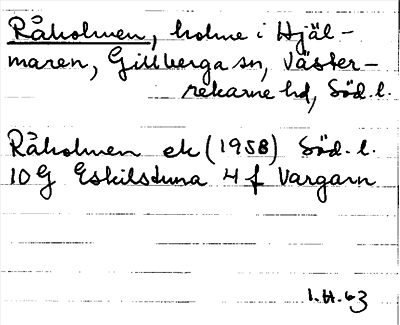 Råholmen, holme i Hjäl-
maren, Gillberga sn, Väster-
rekarne hd, Söd. l.
Råholmen ek (1958) Söd. l.
10G Eskilstuna 4 f Vargarn
1.H.63